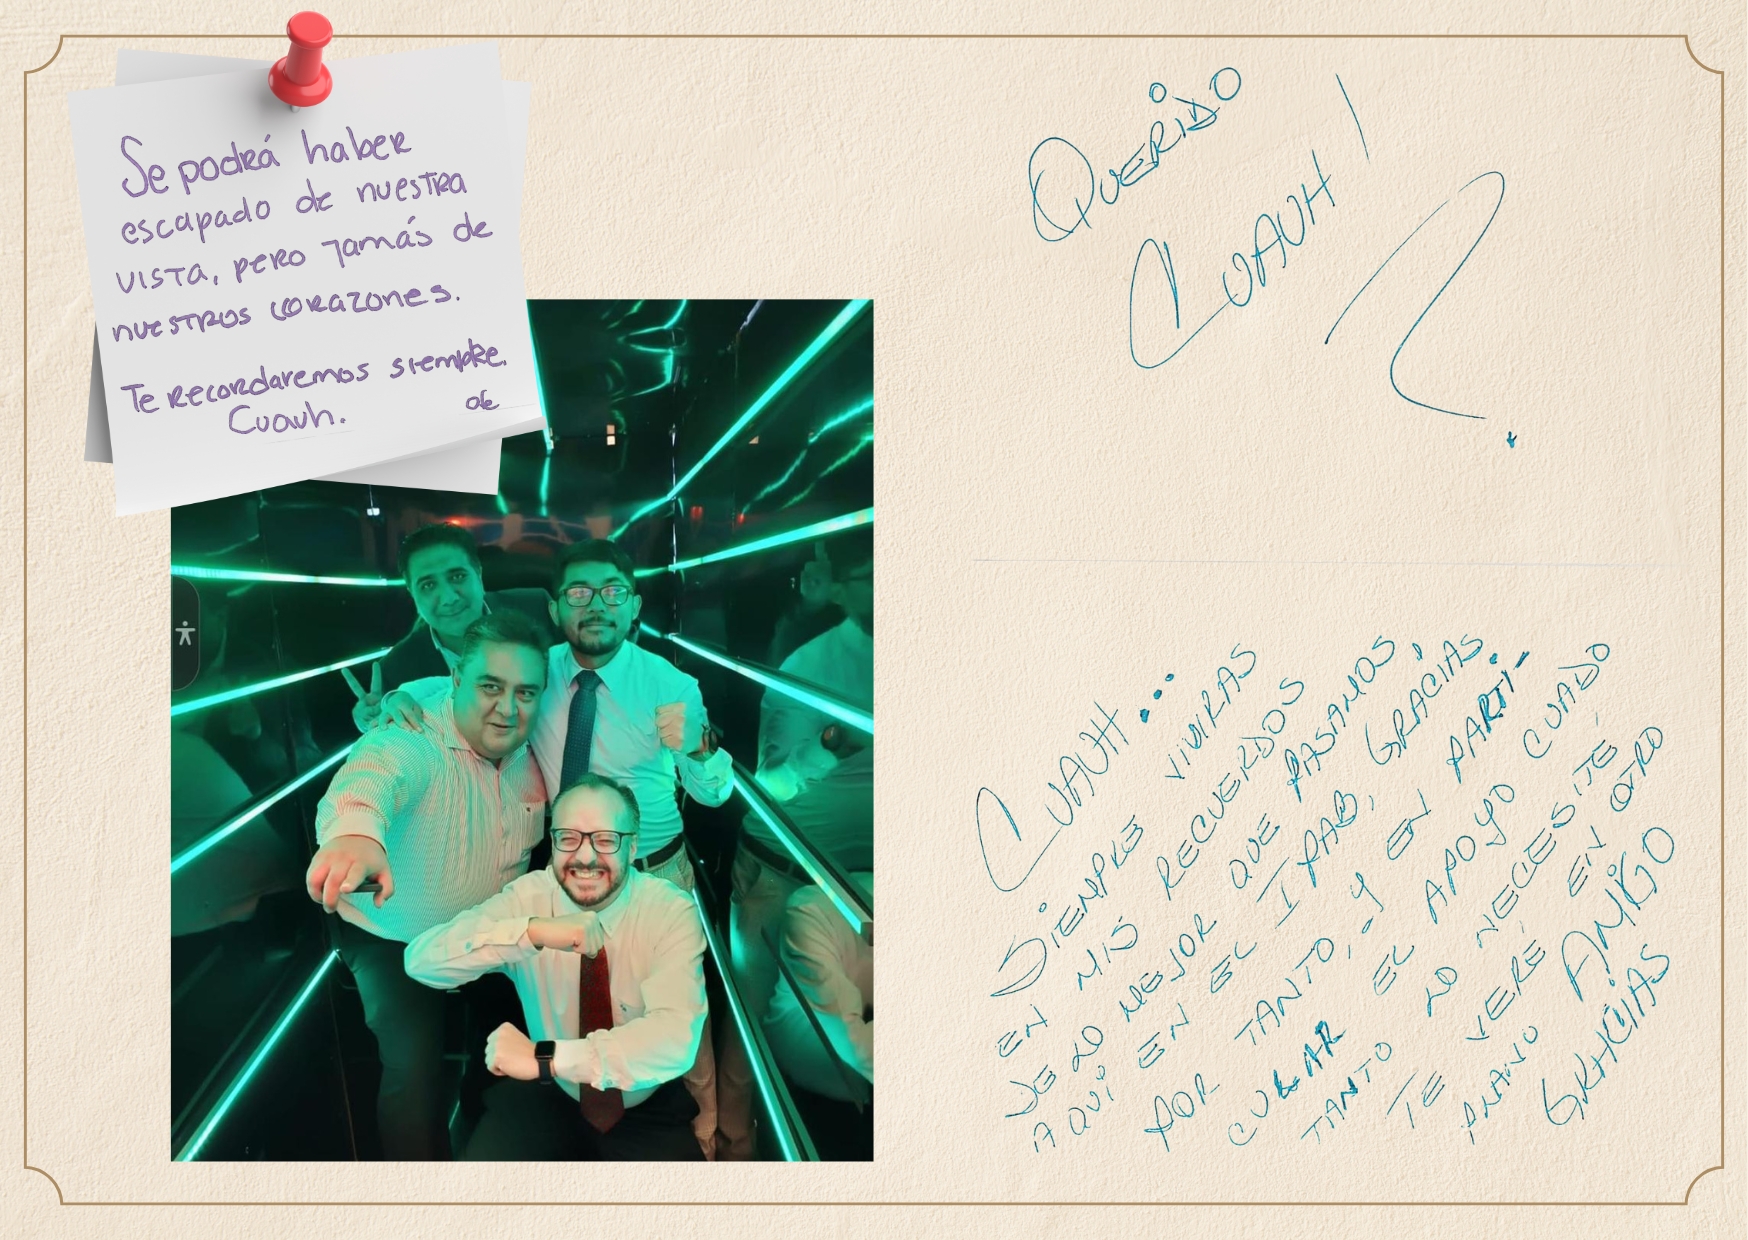 Se podrá haber
escapado de nuestra
vista, pero jamás de
nuestros corazones.
Te recordaremos siempre.
Cuauh.
QUERIDO
CUAUH!
CUAUH...
SIEMPRE VIVIRAS
EN MIS RECUERDOS
DE LO MEJOR QUE PASAMOS,
AQUÍ EN EL IPAB, GRACIAS
POR TANTO, Y EN PARTI-
CULAR EL APOYO CUADO
TANTO LO NECESITÉ,
TE VERÉ EN OTRO
PLANO AMIGO
GRACIAS